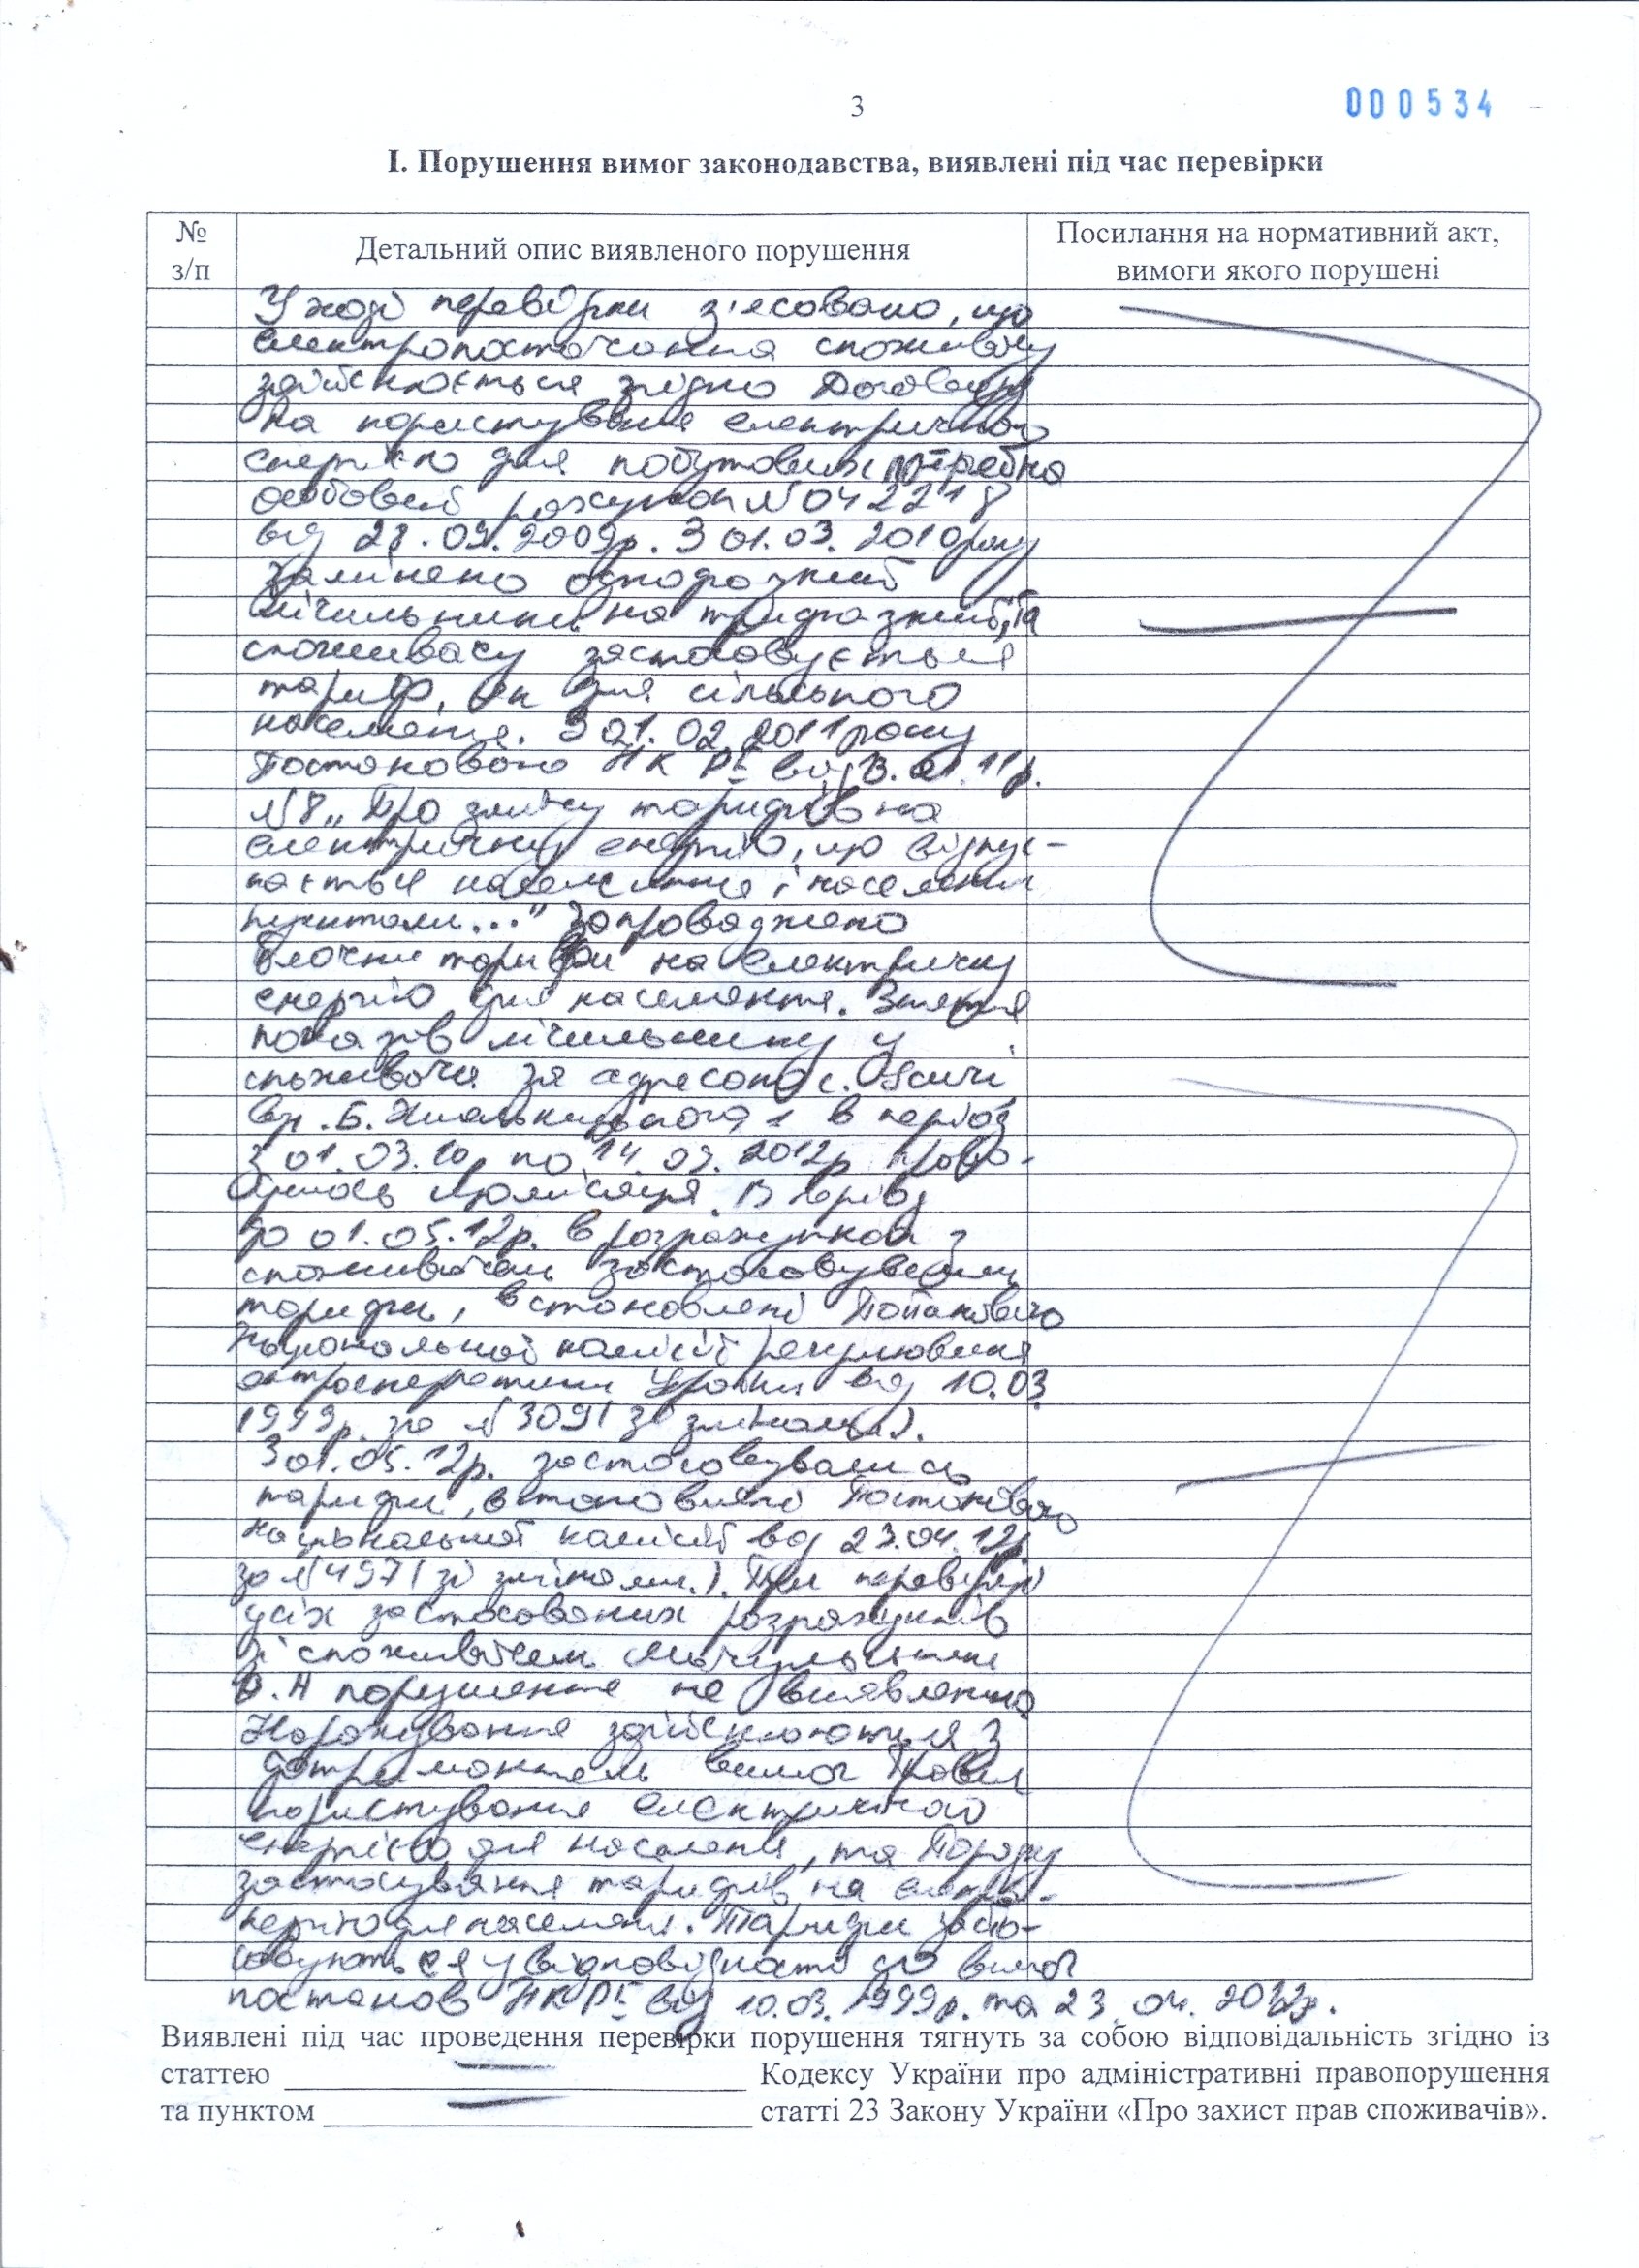 3
000534
І. Порушення вимог законодавства, виявлені під час перевірки
№ з/п
Детальний опис виявленого порушення
Посилання на нормативний акт, вимоги якого порушені
У ході перевірки з'ясовано, що
електропостачання споживачу
здійснюється згідно Договору
на користування електричною
енергією для побутових потреб на
особовий рахунок №042218
від 28.09.2009р. З 01.03.2010 року
Замінено однофазний
лічильник на трифазний, та
споживачу застосовується
тариф, як для сільського
населення. З 01.02.2011 року
Постановою НКРЕ від 13.01.11р.
№8 „Про зміну тарифів на
електричну енергію, що відпус-
кається населенню і населеним
пунктам..." Запроваджено
блочні тарифи на електричну
енергію для населення. Зняття
показів лічильнику у
споживача за адресою с.
вул. Б. Хмельницького 1 в період
з 01.03.10 по 14.09.2012р прово-
дилось щомісяця. В період
до 01.05.12р. в розрахунках з
споживачем застосовувались
тарифи, встановлені Постановою
Національної комісії регулювання
електроенергетики України від 10.03
1999р. за №309 (Зі змінами).
З 01.05.12р. застосовувались
тарифи, встановлені Постановою
національної комісії від 23.04.12р
за №497 (зі змінами.). При перевірці
усіх застосованих розрахунків
зі споживачем
О.Н порушення не виявлено
Нарахування здійснюються з
дотриманням вимог Правил
користування електричною
енергією для населення, та Порядку
застосування тарифів на електро-
енергію для населення. Тарифи засто-
совуються у відповідності до вимог
постанов НКРЕ від 10.03.1999р. та 23.04.2012р.
Виявлені під час проведення перевірки порушення тягнуть за собою відповідальність згідно із
статтею ____ Кодексу України про адміністративні правопорушення
та пунктом ____ статті 23 Закону України «Про захист прав споживачів».